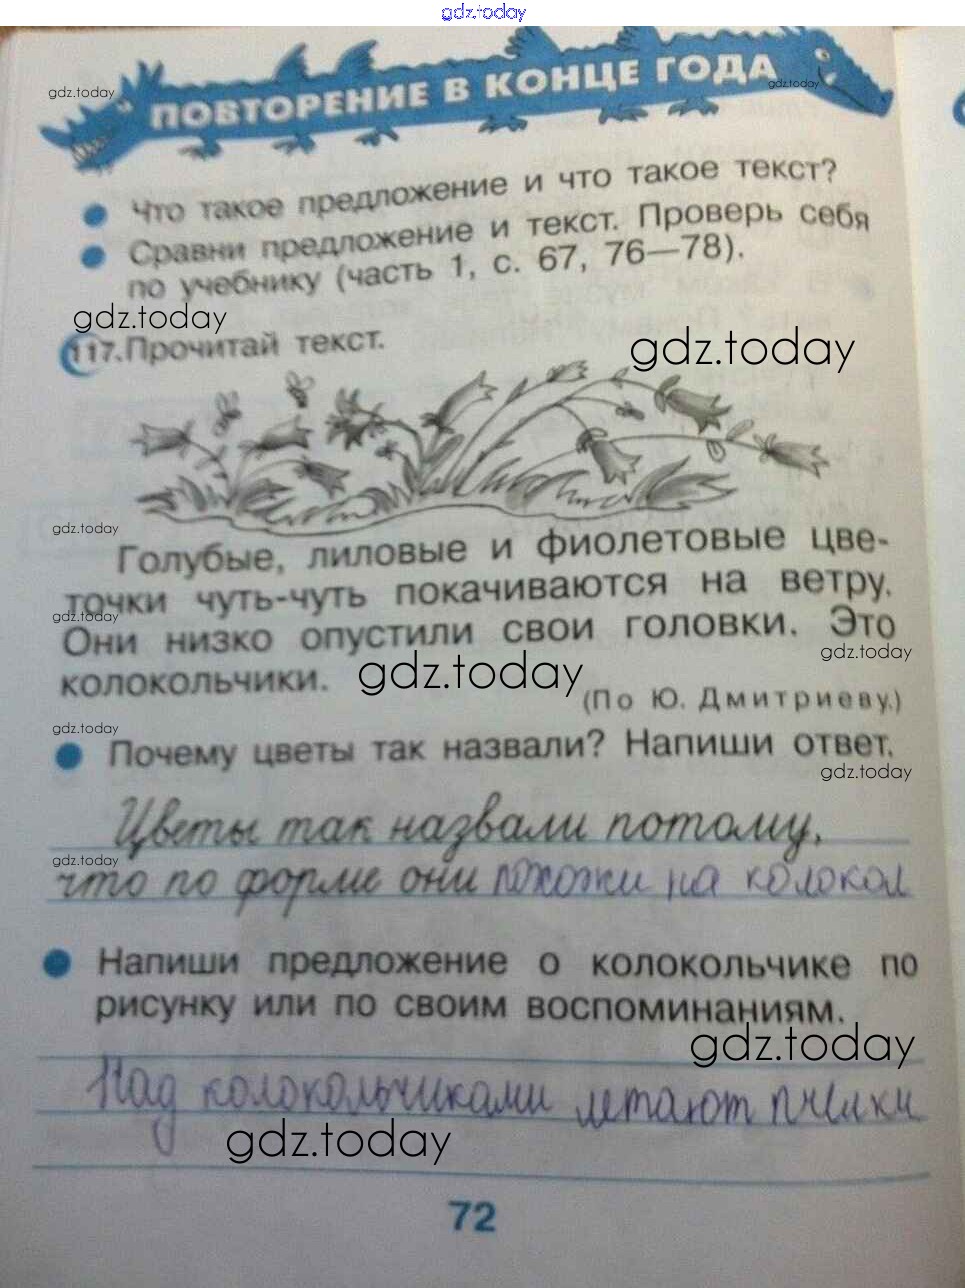 gdz.today
ПОВТОРЕНИЕ В КОНЦЕ ГОДА
gdz.today
gdz.today
Что такое предложение и что такое текст?
Сравни предложение и текст. Проверь себя
по учебнику (часть 1, с. 67, 76—78).
gdz.today
117. Прочитай текст.
gdz.today
gdz.today
Голубые, лиловые и фиолетовые цве-
точки чуть-чуть покачиваются на ветру.
gdz.today
Они низко опустили свои головки. Это
gdz.today
колокольчики.
gdz.today
(По Ю. Дмитриеву.)
gdz.today
Почему цветы так назвали? Напиши ответ.
gdz.today
Цветы так назвали потому,
gdz.today
что по форме они похожи на колокол
Напиши предложение о колокольчике по
рисунку или по своим воспоминаниям.
gdz.today
Над колокольчиками летают пчёлки
gdz.today
72